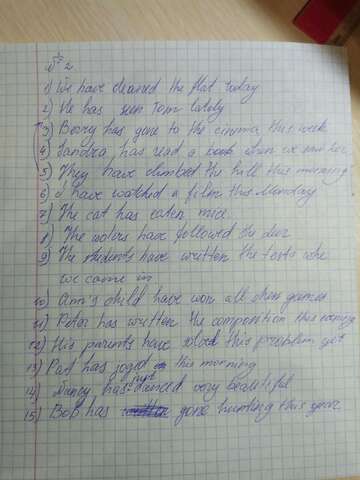 № 2
1) We have cleaned the flat today
2) He has seen Tom lately
3) Beory has gone to the cinema this week
4) Sandra has read a book when we saw her
5) They have climbed the hill this morning
6) I have watched a film this Monday
7) The cat has eaten mice
8) The wolves have followed the deer
9) The students have written the tests whe
we came in
10) Ann's child have won all chess games
11) Peter has written the composition this evening
12) His parents have solved this problem yet
13) Pat has joged this morning
14) Nancy has just danced very beautiful
15) Bob has gone hunting this year